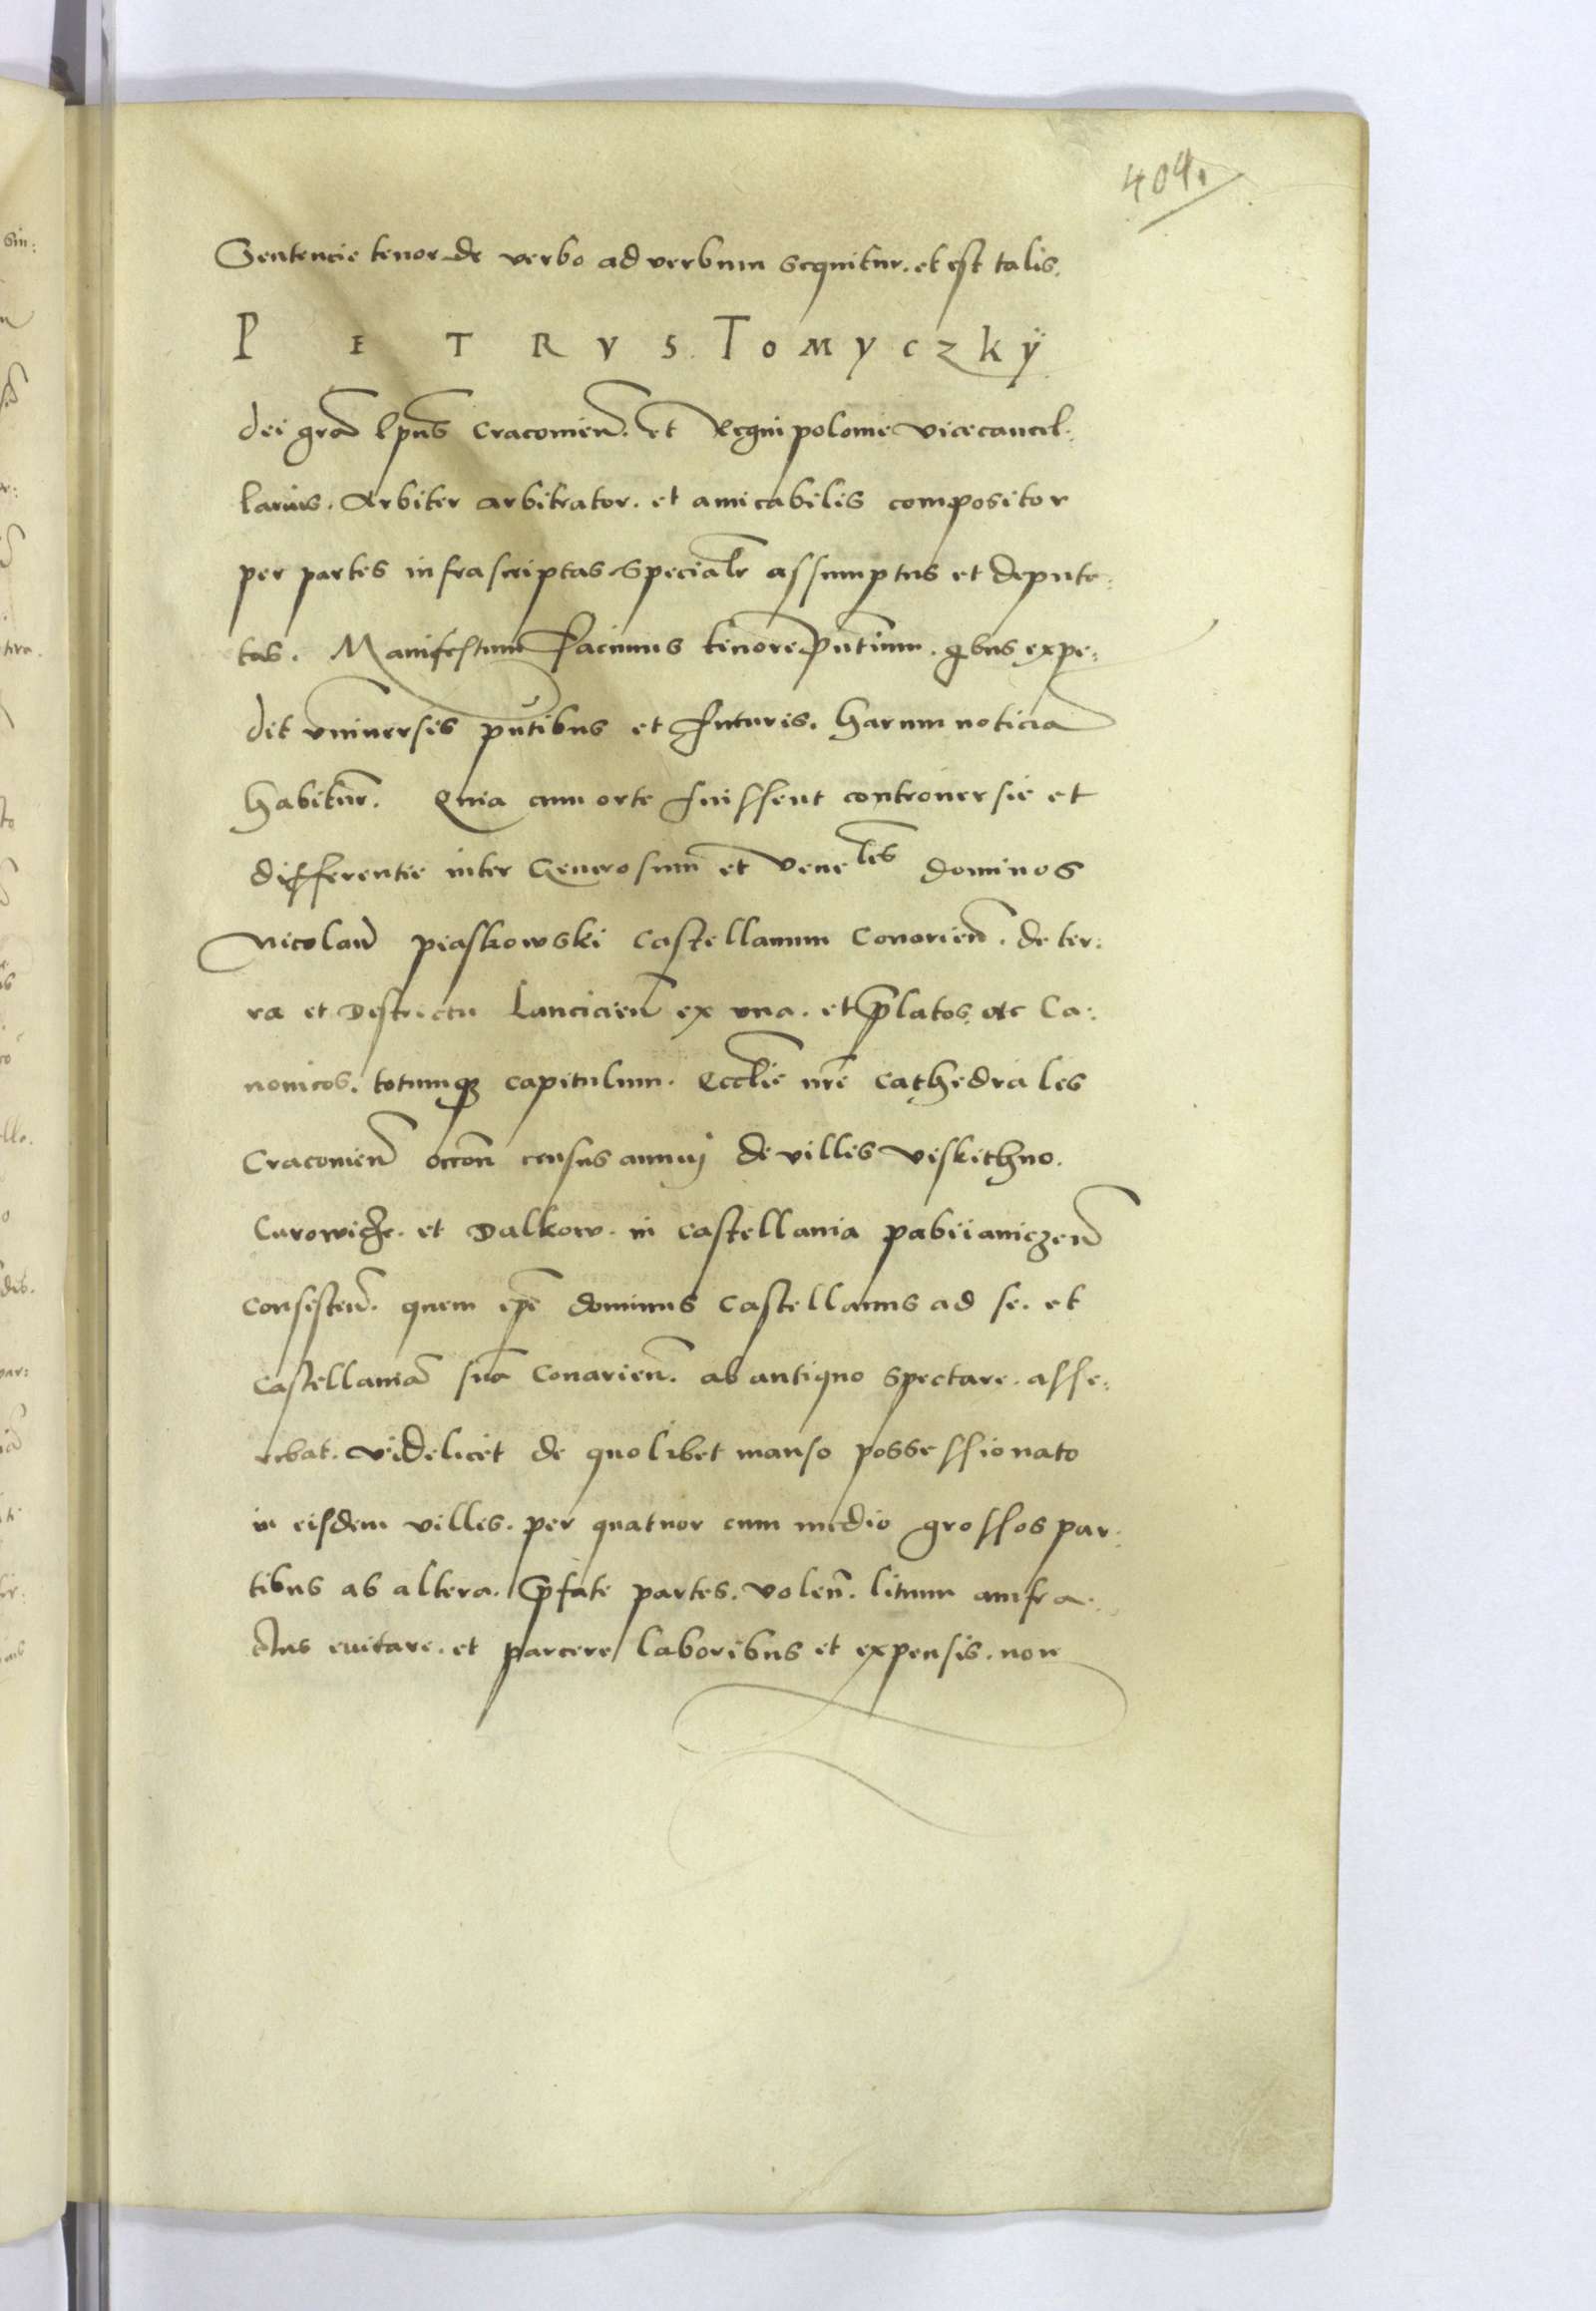 404.
Sentencie tenor de verbo ad verbum sequitur. et est talis.
PETRVS Tomyczkÿ
dei gra͂ Epus͂ Cracouien͂. et Regni polonie vicecancel:
larius. Arbiter arbitrator. et amicabilis compositor
per partes infrascriptas specialr͂ assumptus et deputa:
tus. Manifestum facimus tenore pn͂tium. qbus expe:
dit vniuersis pn͂tibus et futuris. harum noticia͂
habitur͂. Quia cum orte fuissent controuersie et
differentie inter Generosum͂ et Veneles͂ dominos
Nicolau͂ piaskowski Castellanum Conarien͂. de ter:
ra et Districtu Lancicien͂ ex vna. et p͂latos. etc Ca:
nonicos. totumqꝫ capitulum. Eccl͂ie nr͂e cathedrales
Cracouien͂ occon͂ census annuj de villis viskithno.
Curowicze. et Dalkow. in castellania pabiianiczen͂
consisten͂. quem ip͂e dominus Castellanus ad se. et
castellania͂ sua͂ Conarien͂. ab antiquo spectare. asse:
rebat. videlicet de quolibet manso possessionato
in eisdem villis. per quatuor cum medio grossos par:
tibus ab altera. p͂fate partes. volen͂. litium amfra:
ctus euitare. et parcere laboribus et expensis. non